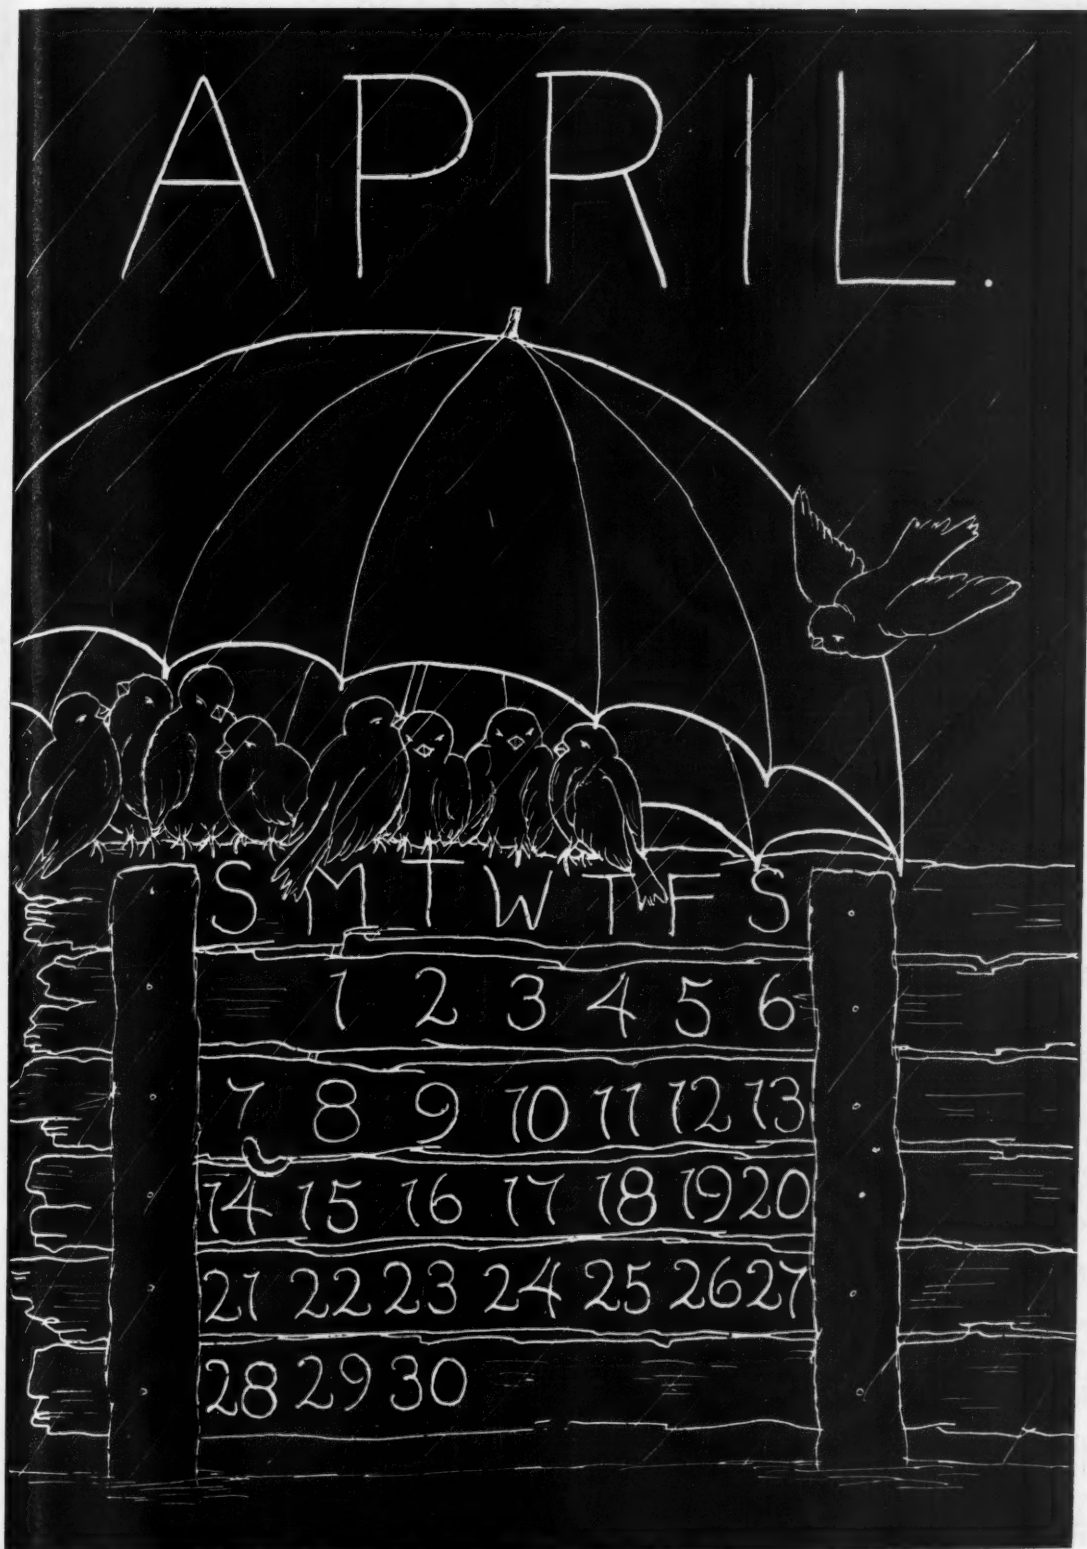 APRIL.
S M T W T F S
1 2 3 4 5 6
7 8 9 10 11 12 13
14 15 16 17 18 19 20
21 22 23 24 25 26 27
28 29 30